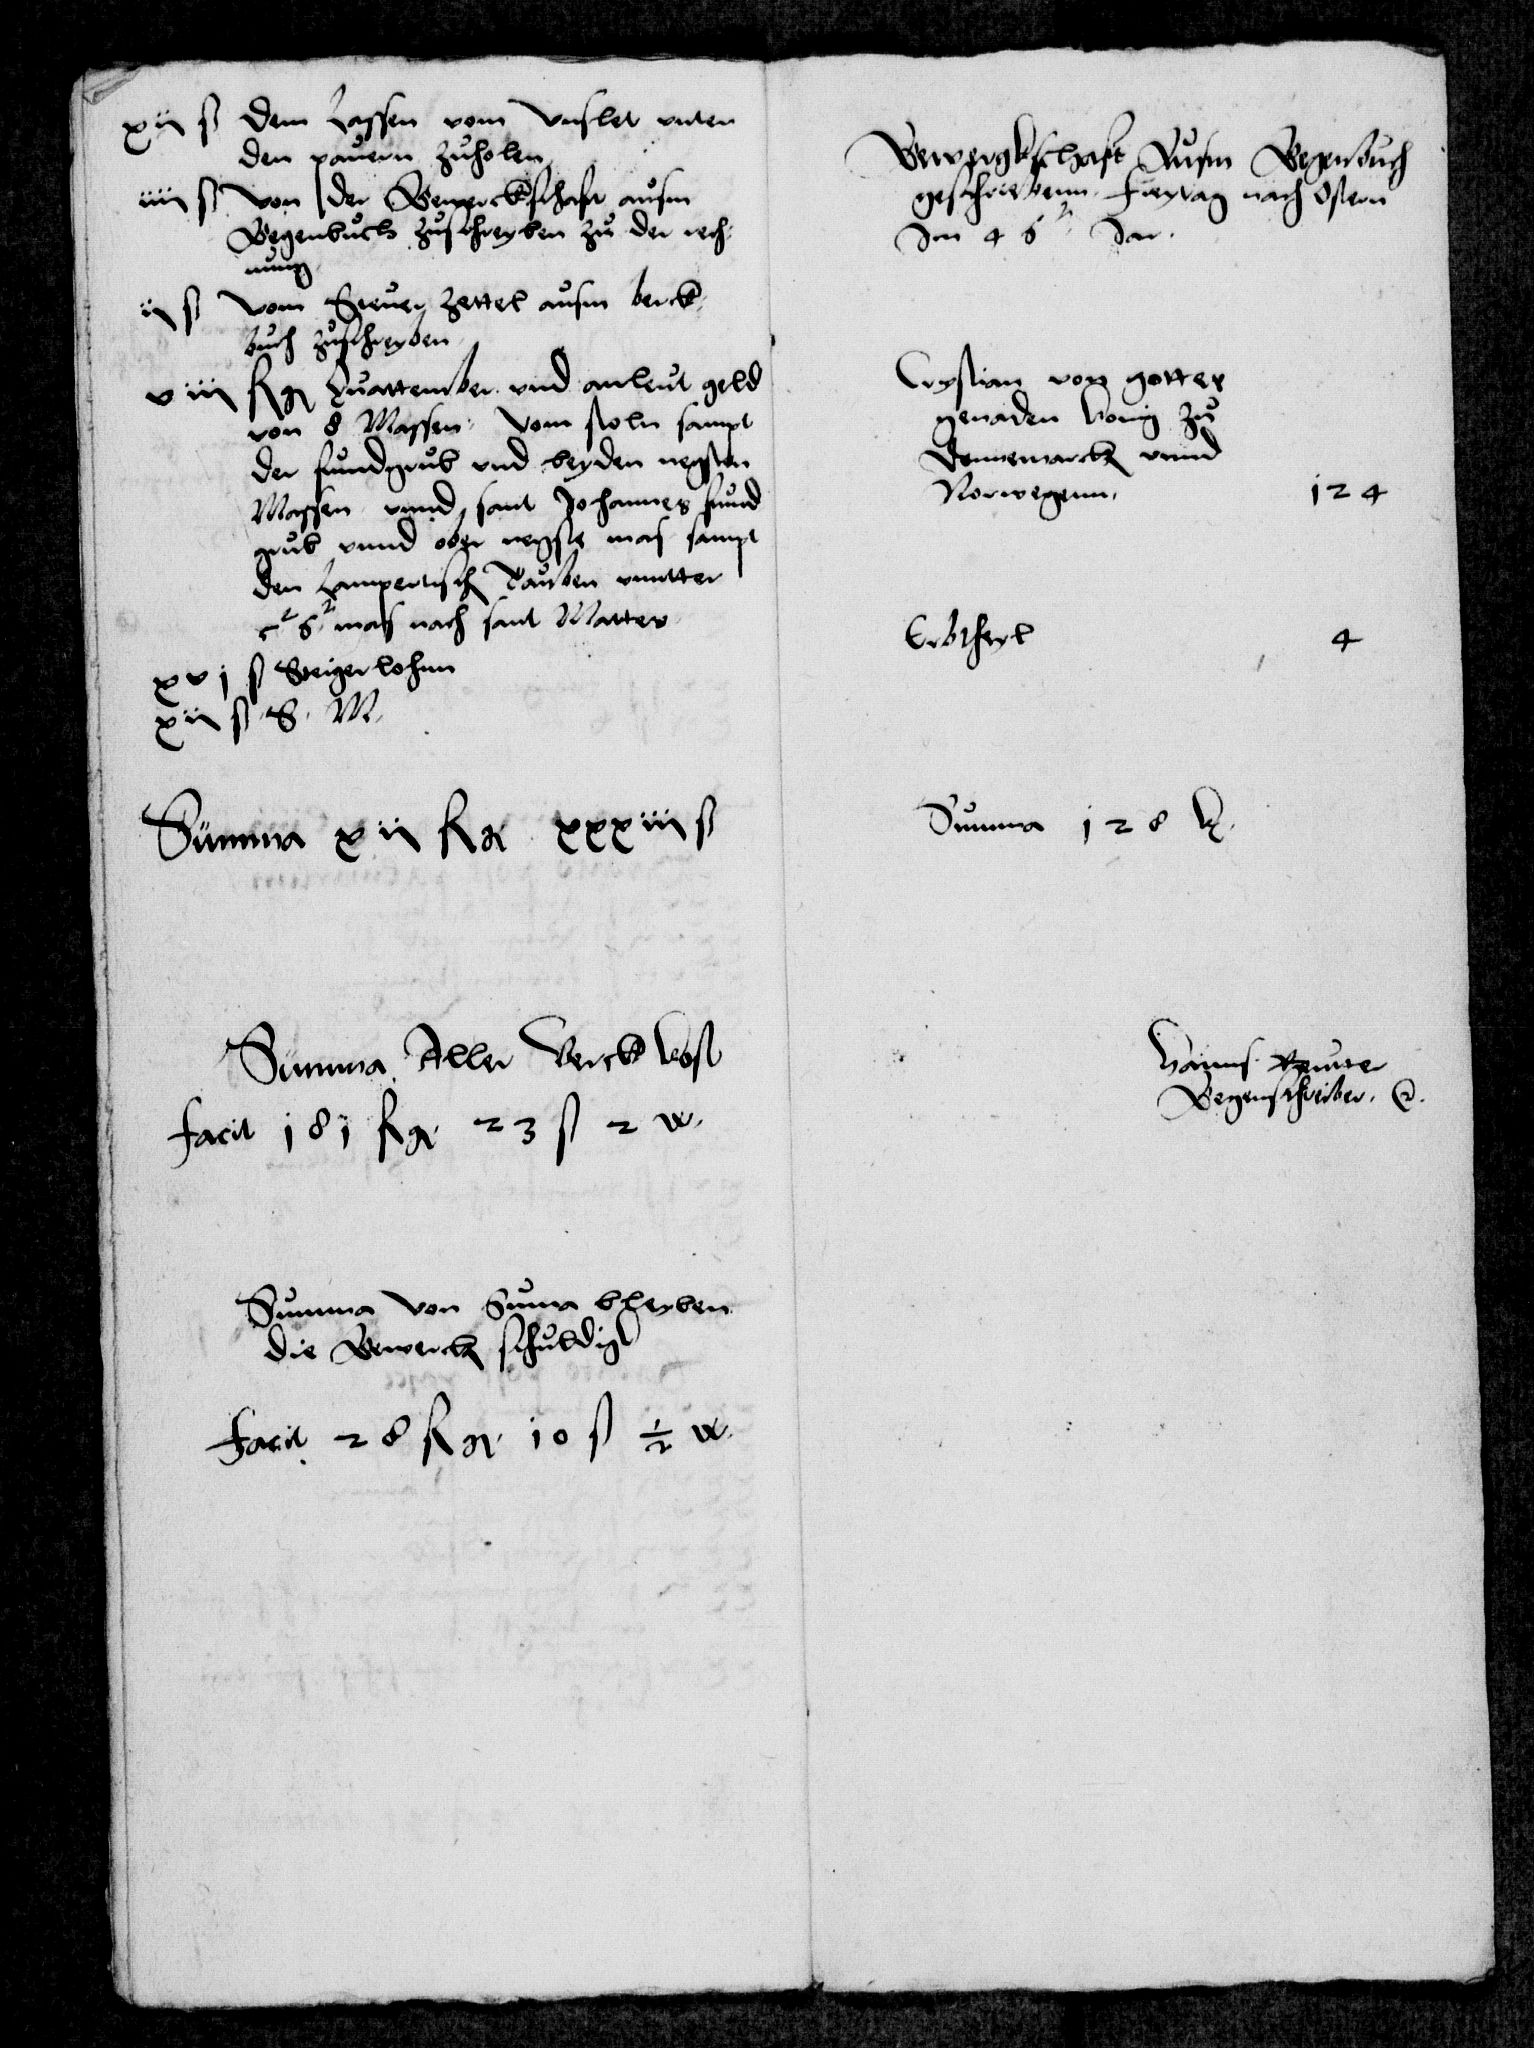 xii ß dem Lassen vom Unslet unten
den pauern zuholen
iiii ß von der Gewerckschaft ausm
Gegenbuch zuschreyben zu der rech-
nung
ii ß vom Steuer zettel ausm berck-
buch zuschreyben
viii ß gr Quattember und anleut geld
von 8 Massen vom stoln sampt
der fundgrub und beyden negsten
Massen unnd sant Johannes fund
grub unnd ober negste mas sampt
den Lampertisch Tauben unntter
6 mas nach sant Mattes
xvj ß Steigerlohnn
xii ß S. M.
Summa xii ß gr xxxiii ß
Summa Aller Berck kost
facit 181 ß gr 23 ß 2 w.
Summa von Suma bleyben
die Gewercken schuldig
facit 28 ß gr 10 ß ½ w.
Gewergkschaft Ausm Gegenbuch
geschriebenn freytag nach Ostern
Im 46 Jar.
Crystian von gottes
genaden konig zu
Dennemarck unnd
Norwegenn. 124
Erbtheyl 4
Summa 128 k.
Hanns Reutter
Gegenschreiber.